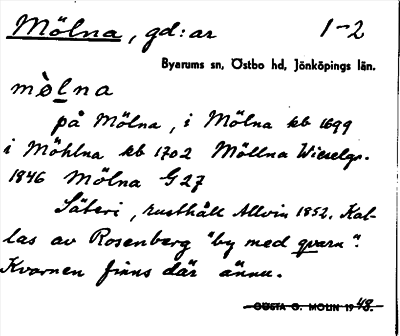 Mölna, gd:ar 1-2
Byarums sn, Östbo hd, Jönköpings län.
mölna
på Mölna, i Mölna kb 1699
i Möhlna kb 1702 Möllna Wieselgr.
1846 Mölna G27
Säteri, rusthåll Allvin 1852. Kal-
las av Rosenberg "by med qvarn".
Kvarnen finns där ännu.
GÖSTA G. MOLIN 1948.